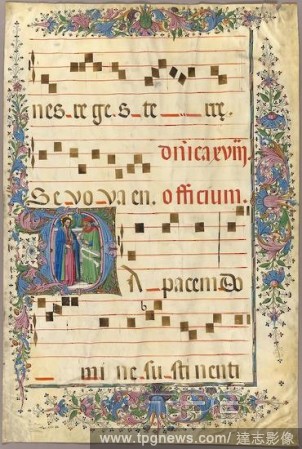 nes re ge.s te rrę.
dn̄ica xviij.
Se vo va en. officium.
DA pacem Do
mi ne su sti nenti
www.tpgnews.com/ 達志影像